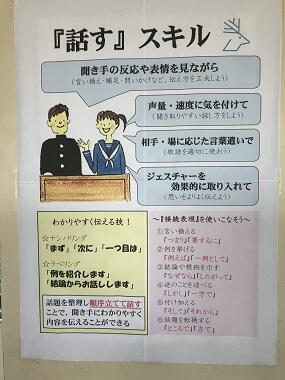 『話す』スキル
聞き手の反応や表情を見ながら
(言い換え・補足・問いかけなど、伝え方を工夫しよう)
声量・速度に気を付けて
(聞き取りやすい話し方をしよう)
相手・場に応じた言葉遣いで
(敬語を適切に使おう)
ジェスチャーを
効果的に取り入れて
(思いをよりよく伝えよう)
わかりやすく伝える技!
☆ナンバリング
「まず」「次に」「一つ目は」
☆ラベリング
「例を紹介します」
「結論からお話しします」
話題を整理し順序立てて話す
ことで、聞き手にわかりやすく
内容を伝えることができる
~『接続表現』を使いこなそう~
①言い換える
「つまり」「要するに」
②例を挙げる
「例えば」「一例として」
③結論や根拠を示す
「なぜなら」「したがって」
④逆のことを述べる
「しかし」「一方で」
⑤付け加える
「そして」「それから」
⑥話題を転換する
「ところで」「さて」